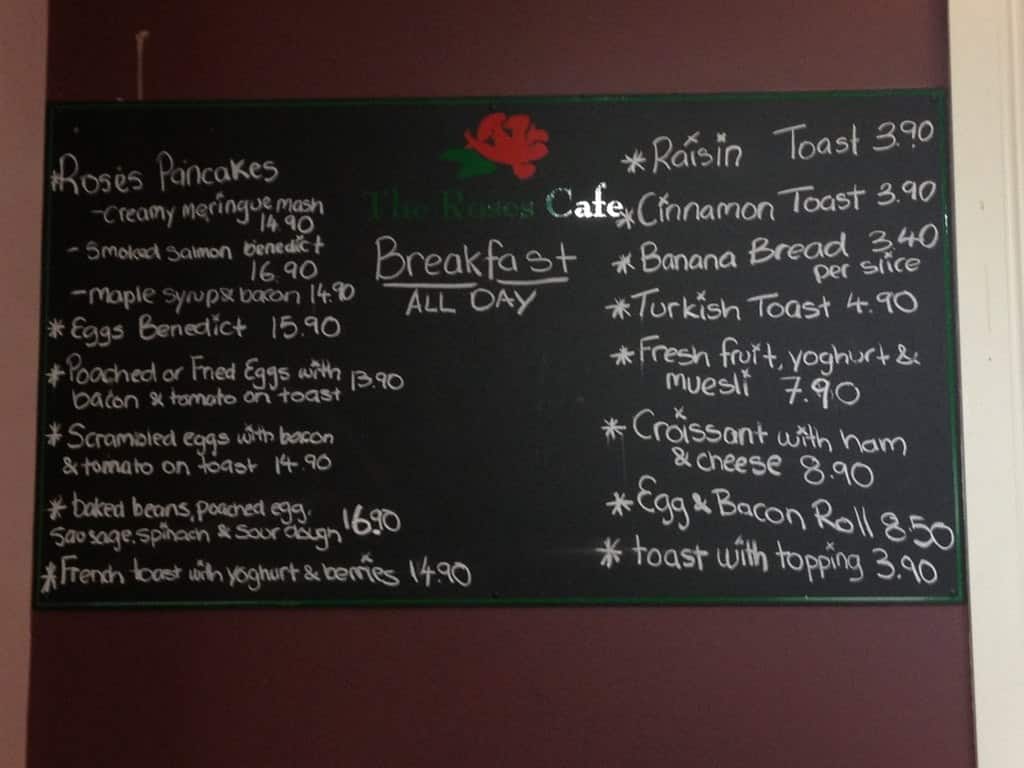 *Roses Pancakes
-Creamy Meringue mash
14.90
- Smoked Salmon benedict
16.90
-Maple syrup & bacon 14.90
* Eggs Benedict 15.90
*Poached or Fried Eggs with
bacon & tomato on toast 13.90
* Scrambled eggs with bacon
& tomato on toast 14.90
* baked beans, poached egg,
Sausage, spinach & Sour dough 16.90
*French toast with yoghurt & berries 14.90
The Roses Cafe
Breakfast
ALL DAY
*Raisin Toast 3.90
*Cinnamon Toast 3.90
*Banana Bread 3.40
per slice
*Turkish Toast 4.90
*Fresh fruit, yoghurt &
muesli 7.90
* Croissant with ham
& cheese 8.90
*Egg & Bacon Roll 8.50
* toast with topping 3.90